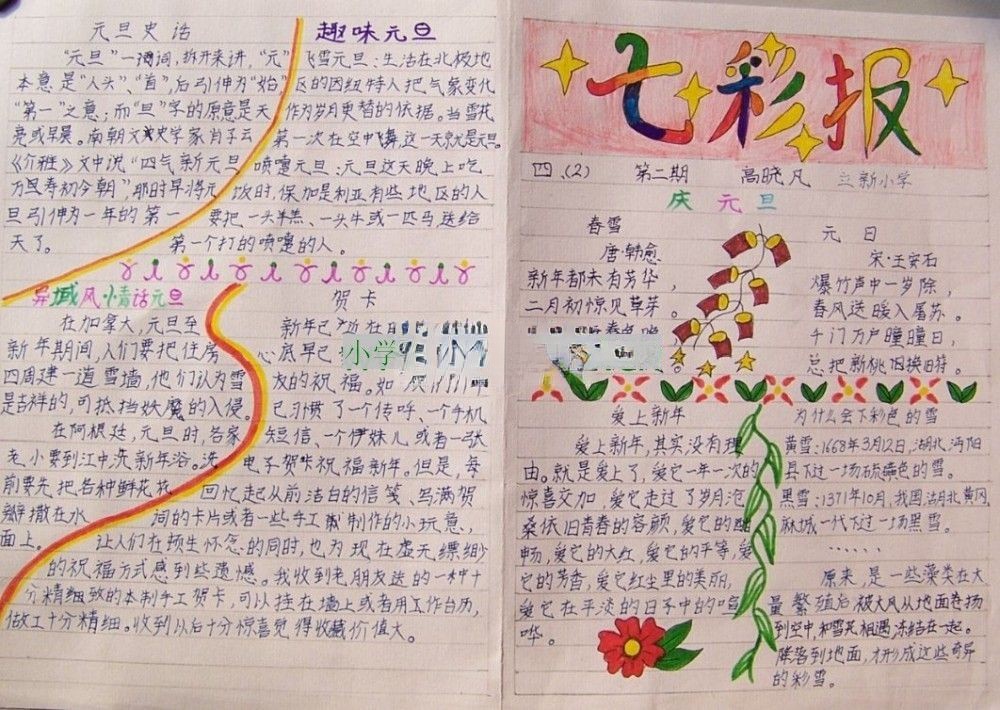 元旦史话
"元旦"一词，拆开来讲，"元"
本意是"人头"、"首"，后引伸为"始"
"第一"之意；而"旦"字的原意是天
亮或早晨。南朝文史学家肖子云
《介雅》文中说"四气新元旦
万民寿初今朝"那时早将元
旦引伸为一年的第一
天了。
趣味元旦
飞雪元旦：生活在北极地
区的因纽特人把气象变化
作为岁月更替的依据。当雪花
第一次在空中飞舞，这一天就是元旦
喷嚏元旦：元旦这天晚上吃
饭时，保加利亚有些地区的人
要把一头羊羔、一头牛或一匹马送给
第一个打的喷嚏的人。
异域风情话元旦
在加拿大，元旦至
新年期间，人们要把住房
四周建一道雪墙，他们认为雪
是吉祥的，可抵挡妖魔的入侵。
在阿根廷，元旦时，各家
老小要到江中洗新年浴。洗
前要先把各种鲜花花
瓣撒在水
面上。
贺卡
新年已
心底早已
友的祝福。如
已习惯了一个传呼、一个手机
短信、一个伊妹儿或者一张
电子贺卡祝福新年。但是，每
回忆起从前洁白的信笺、写满贺
词的卡片或者一些手工制作的小玩意，
让人们在顿生怀念的同时，也为现在虚无缥缈
的祝福方式感到些遗憾。我收到老朋友送的一种十
分精细致的本制手工贺卡，可以挂在墙上或者用工作台历，
做工十分精细。收到以后十分惊喜觉得收藏价值大。
小学
七彩报
四、(2) 第二期 高晓凡 立新小学
庆元旦
春雪
唐·韩愈
新年都未有芳华，
二月初惊见草芽。
元日
宋·王安石
爆竹声中一岁除，
春风送暖入屠苏。
千门万户曈曈日，
总把新桃换旧符。
爱上新年
爱上新年，其实没有理
由。就是爱上了，爱它一年一次的
惊喜交加，爱它走过了岁月沧
桑依旧青春的容颜，爱它的
畅，爱它的大红，爱它的平等，爱
它的芳香，爱它红尘里的美丽，
爱它在平淡的日子中的喧
哗。
为什么会下彩色的雪
黄雪：1668年3月12日，湖北，沔阳
县下过一场硫磺色的雪。
黑雪：1371年10月，我国湖北黄冈
麻城一代下过一场黑雪。
……
原来，是一些藻类在大
量繁殖后被大风从地面卷扬
到空中，和雪花相遇，冻结在一起。
降落到地面，才形成这些奇异
的彩雪。